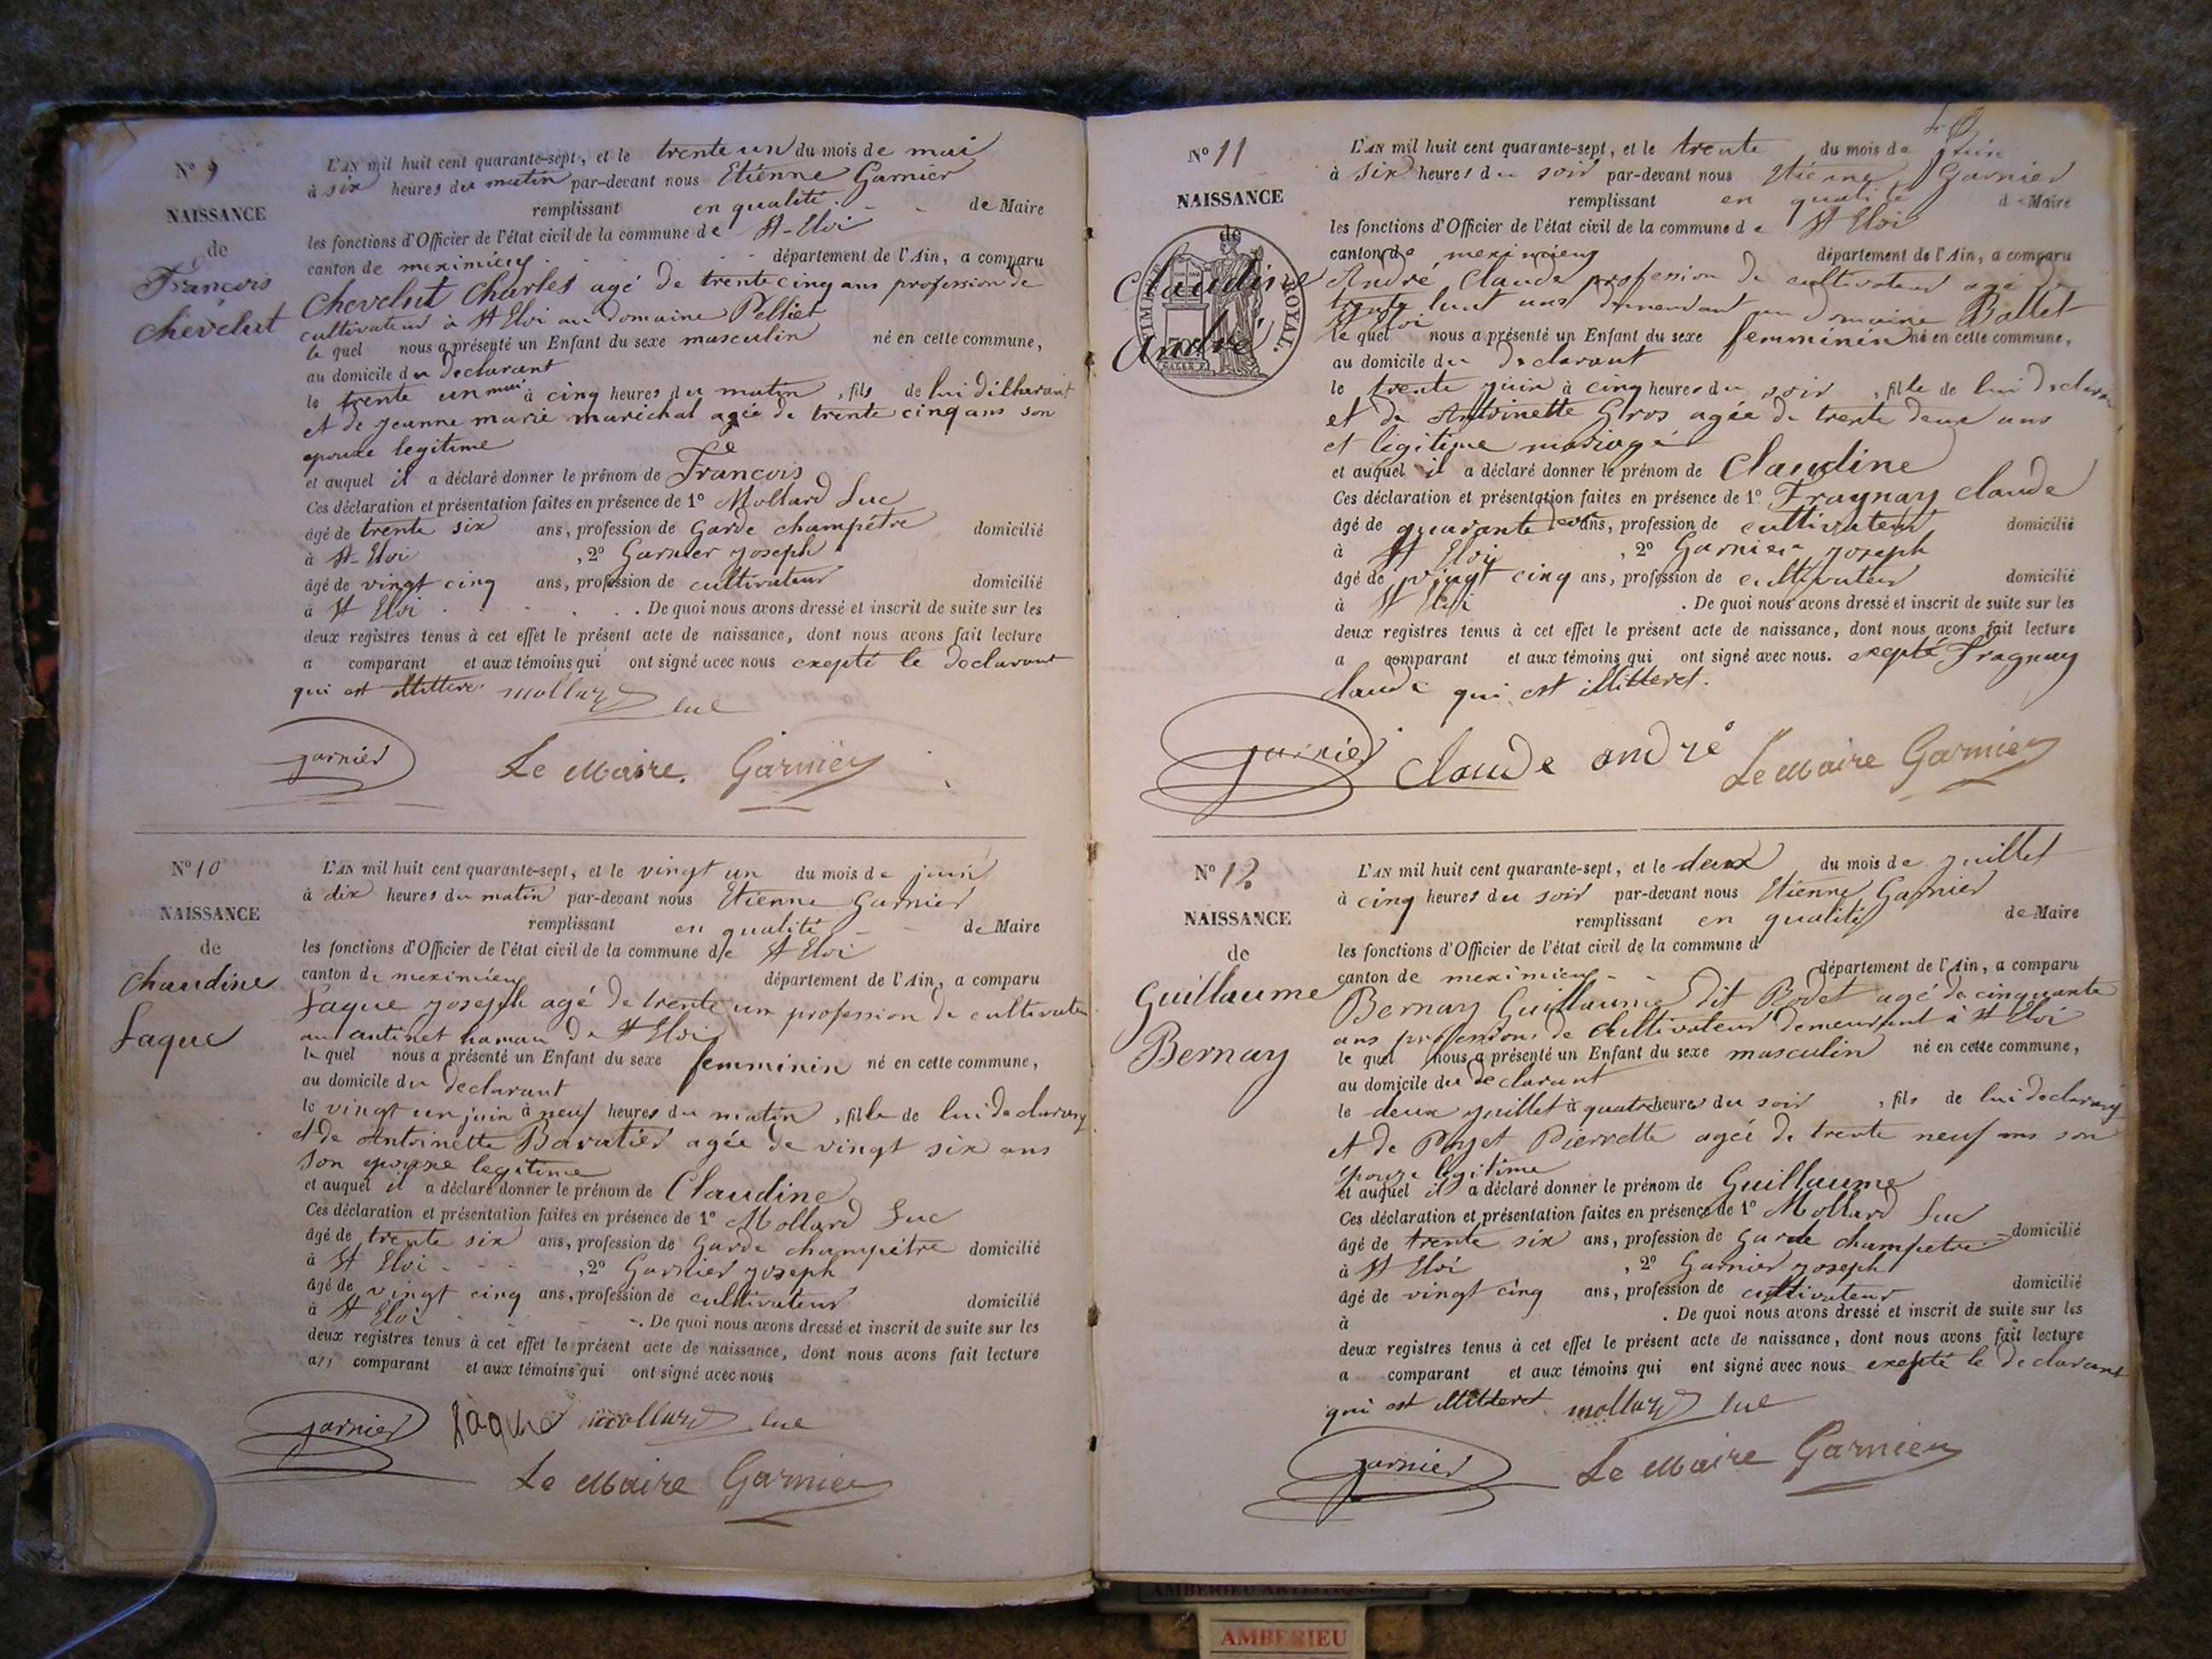 N° 9
NAISSANCE
de
Francois
Chevelut
L'AN mil huit cent quarante-sept, et le trente un du mois de mai
à six heures du matin par-devant nous Etienne Garnier
remplissant en qualité de Maire
les fonctions d'Officier de l'état civil de la commune de St-Eloi
canton de meximieux département de l'Ain, a comparu
Chevelut Charles agé de trente cinq ans profession de
cultivateur à St Eloi au domaine Pelliet
le quel nous a présenté un Enfant du sexe masculin né en cette commune,
au domicile du declarant
le trente un mai à cinq heures du matin, fils de lui
et de jeanne marie maréchal agée de trente cinq ans son
epouse legitime
et auquel il a déclaré donner le prénom de Francois
Ces déclaration et présentation faites en présence de 1° Mollard Luc
âgé de trente six ans, profession de Garde champétre domicilié
à St-Eloi , 2° Garnier joseph
âgé de vingt cinq ans, profession de cultivateur domicilié
à St Eloi . De quoi nous avons dressé et inscrit de suite sur les
deux registres tenus à cet effet le présent acte de naissance, dont nous avons fait lecture
a comparant et aux témoins qui ont signé avec nous exepté le declarant
qui est mollard luc
garnier Le Maire. Garnier
N° 10
NAISSANCE
de
Chaudine
Laque
L'AN mil huit cent quarante-sept, et le vingt un du mois de juin
à dix heures du matin par-devant nous Etienne Garnier
remplissant en qualité de Maire
les fonctions d'Officier de l'état civil de la commune de St Eloi
canton de meximieux département de l'Ain, a comparu
Laque joseph agé de trente un profession de cultivateur
au antinet hamau de St Eloi
le quel nous a présenté un Enfant du sexe femminin né en cette commune,
au domicile du declarant
le vingt un juin à neuf heures du matin, fille de lui declarant
et de Antoinette Baratier agée de vingt six ans
son epouse legitime
et auquel il a déclaré donner le prénom de Claudine
Ces déclaration et présentation faites en présence de 1° Mollard Luc
âgé de trente six ans, profession de Garde champétre domicilié
à St Eloi , 2° Garnier joseph
âgé de vingt cinq ans, profession de cultivateur domicilié
à St Eloi . De quoi nous avons dressé et inscrit de suite sur les
deux registres tenus à cet effet le présent acte de naissance, dont nous avons fait lecture
au comparant et aux témoins qui ont signé avec nous
garnier Laque mollard luc
Le Maire Garnier
N° 11
NAISSANCE
de
Claudine
André
TIMBRE ROYAL.
L'AN mil huit cent quarante-sept, et le trente du mois de juin
à six heures du soir par-devant nous Etienne Garnier
remplissant en qualité de Maire
les fonctions d'Officier de l'état civil de la commune de St Eloi
canton de meximieux département de l'Ain, a comparu
André Claude profession de cultivateur agé de
trente huit ans demeurant au domaine Ballet
St Eloi
le quel nous a présenté un Enfant du sexe femminin né en cette commune,
au domicile du declarant
le trente juin à cinq heures du soir, fille de lui declarant
et de Antoinette Gros agée de trente deux ans
et legitime mariage
et auquel il a déclaré donner le prénom de Claudine
Ces déclaration et présentation faites en présence de 1° Fragnay claude
âgé de quarante deux ans, profession de cultivateur domicilié
à St Eloi , 2° Garnier joseph
âgé de vingt cinq ans, profession de cultivateur domicilié
à St Eloi . De quoi nous avons dressé et inscrit de suite sur les
deux registres tenus à cet effet le présent acte de naissance, dont nous avons fait lecture
a comparant et aux témoins qui ont signé avec nous. exepté Fragnay
claude qui est illitteret.
garnier Claude andré Le Maire Garnier
N° 12
NAISSANCE
de
Guillaume
Bernay
L'AN mil huit cent quarante-sept, et le deux du mois de juillet
à cinq heures du soir par-devant nous Etienne Garnier
remplissant en qualité de Maire
les fonctions d'Officier de l'état civil de la commune d
canton de meximieux département de l'Ain, a comparu
Bernay Guillaume dit agé de cinquante
ans profession de cultivateur demeurant à St Eloi
le quel nous a présenté un Enfant du sexe masculin né en cette commune,
au domicile du declarant
le deux juillet à quatre heures du soir, fils de lui declarant
et de Pierrette agée de trente neuf ans son
epouze legitime
et auquel il a déclaré donner le prénom de Guillaume
Ces déclaration et présentation faites en présence de 1° Mollard Luc
âgé de trente six ans, profession de garde champetre domicilié
à St Eloi , 2° Garnier joseph
âgé de vingt cinq ans, profession de cultivateur domicilié
à . De quoi nous avons dressé et inscrit de suite sur les
deux registres tenus à cet effet le présent acte de naissance, dont nous avons fait lecture
a comparant et aux témoins qui ont signé avec nous exepté le declarant
qui est illitteret mollard luc
garnier Le Maire Garnier
AMBERIEU
AMBERIEU